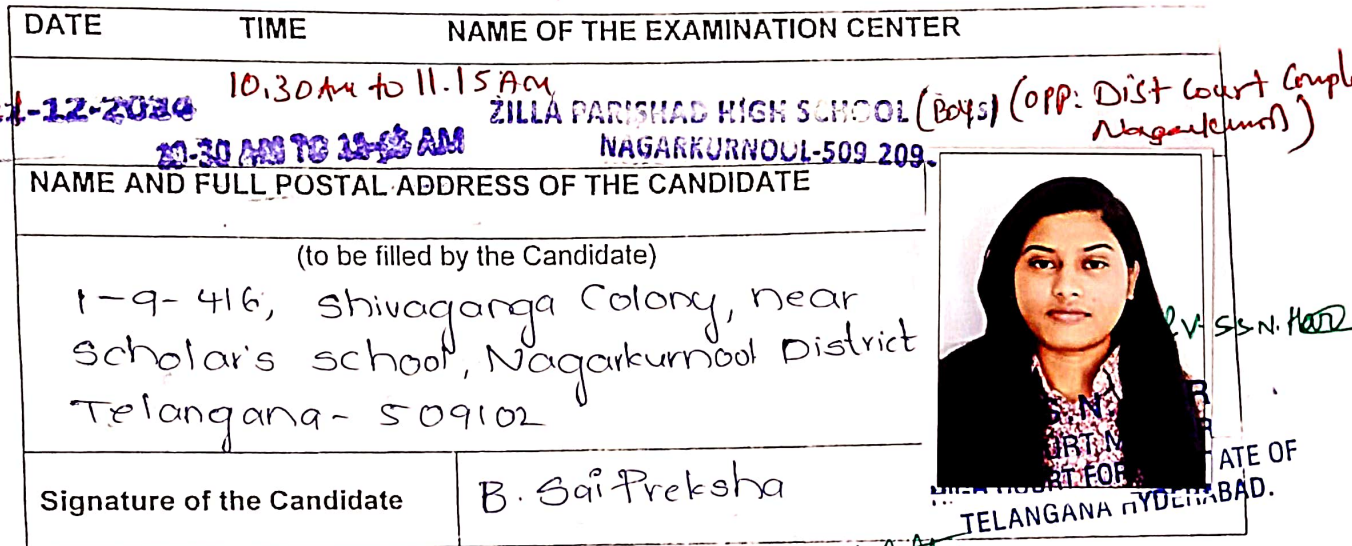 DATE TIME NAME OF THE EXAMINATION CENTER
10.30 Am to 11.15 AM
-12-2020 ZILLA PARISHAD HIGH SCHOOL (Boys) (OPP: Dist Court Compl
10-30 AM TO AM NAGARKURNOOL-509 209. Nagarkurnool)
NAME AND FULL POSTAL ADDRESS OF THE CANDIDATE
(to be filled by the Candidate)
1-9-416, Shivaganga Colony, near
Scholar's school, Nagarkurnool District
Telangana- 509102
Signature of the Candidate B. Sai Preksha
S.N
R
URT
RT FOR ATE OF
TELANGANA HYDERABAD.